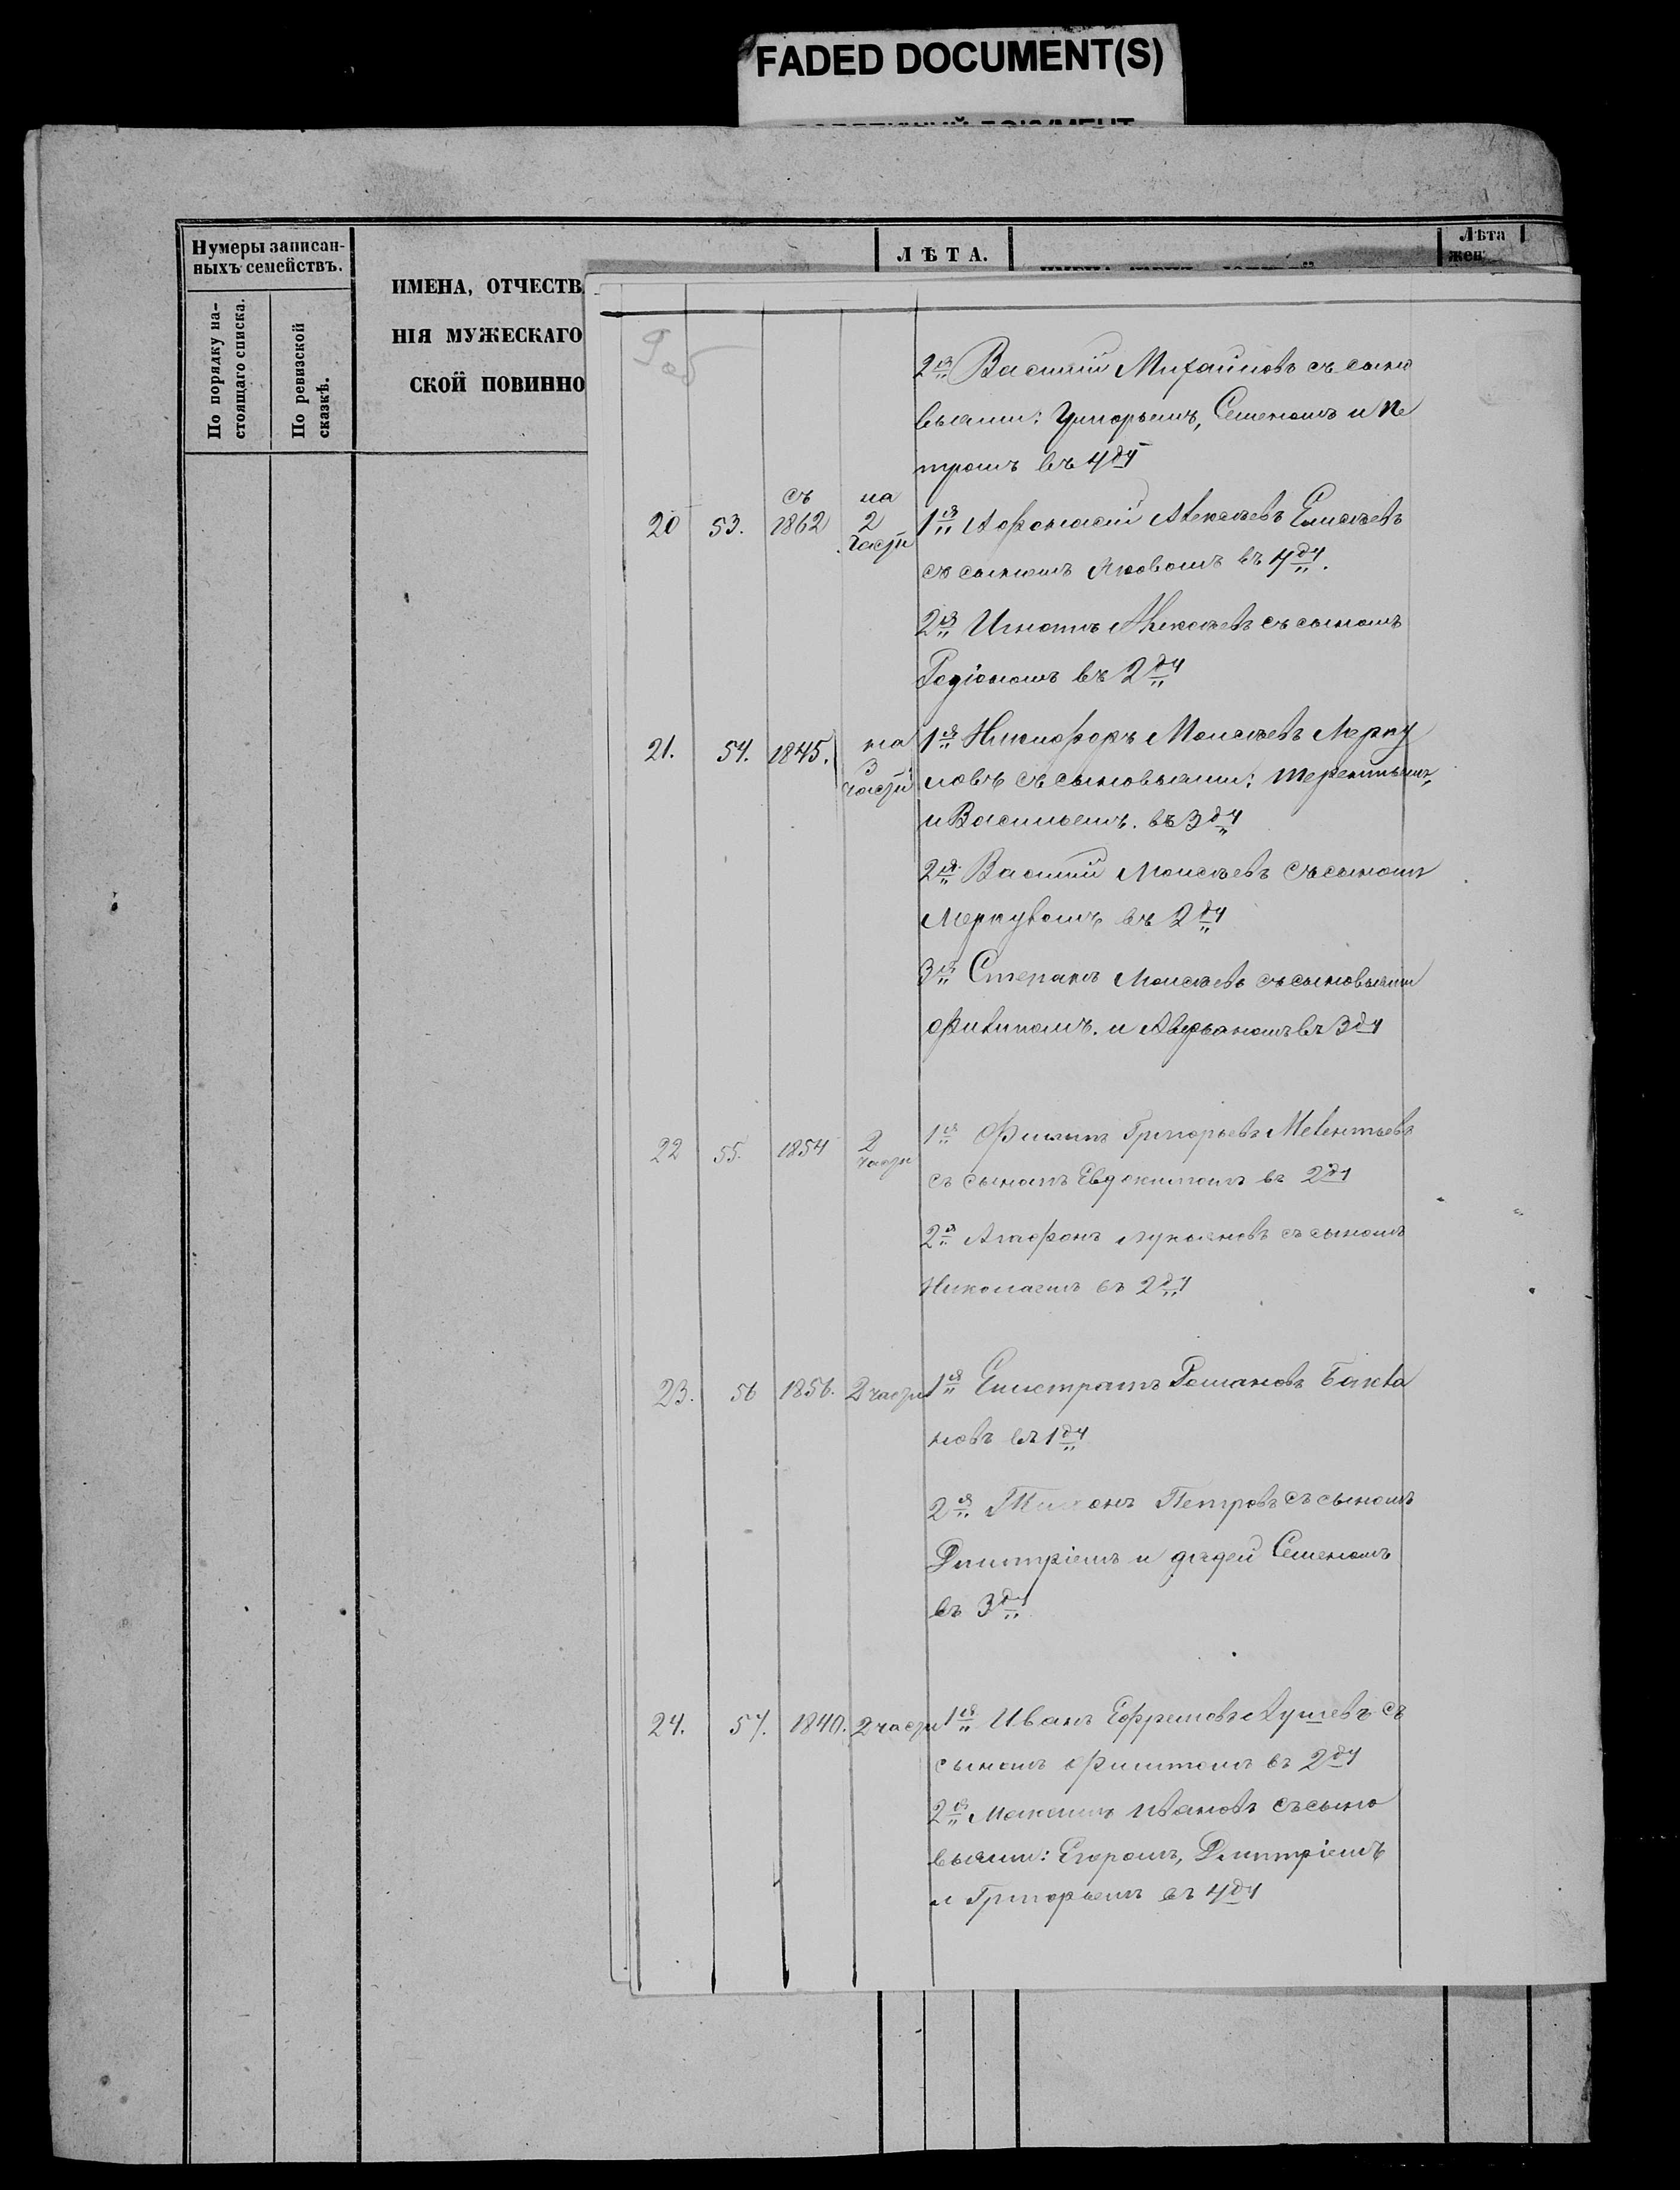 FADED DOCUMENT(S)
Нумеры записан-
ныхъ семействъ.
По порядку на-
стоящаго списка.
По ревизской
сказкѣ.
ИМЕНА, ОТЧЕСТВ
НІЯ МУЖЕСКАГО
СКОЙ ПОВИННО
ЛѢТА.
Лѣта
жен
2я Василій Михайловъ съ сыно
выями: Григорьемъ, Семеномъ и Пе
тромъ въ 4 дч
20 53. съ 1862 на 2 части 1я Афонасій Алексѣевъ Елисѣевъ
съ сыномъ Яковомъ въ 4 дч.
2я Игнатъ Алексѣевъ съ сыномъ
Родіономъ въ 2 дч
21. 54. 1845. на 3 части 1я Никифоръ Моисѣевъ Мерку
ловъ съ сыновьями: Терентьемъ,
и Васильемъ. въ 3 дч
2я Василій Моисѣевъ съ сыномъ
Меркуломъ въ 2 дч
3я Степанъ Моисѣевъ съ сыновьями
Филипомъ. и Аверьяномъ въ 3 дч
22 55. 1854 2 части 1я Филипъ Григорьевъ Мелентьевъ
съ сыномъ Евдокимомъ въ 2 дч
2я Агафонъ Лукьяновъ съ сыномъ
Николаемъ въ 2 дч
23. 56 1856. 2 части 1я Елистратъ Романовъ Бакла
новъ въ 1 дч
2я Тихонъ Петровъ съ сыномъ
Дмитріемъ и дядей Семеномъ
въ 3 дч
24. 57. 1840. 2 части 1я Иванъ Ефремовъ съ
сыномъ въ 2 дч
2я Максимъ Ивановъ съ сыно
вьями: Егоромъ, Дмитріемъ
и Григорьемъ въ 4 дч